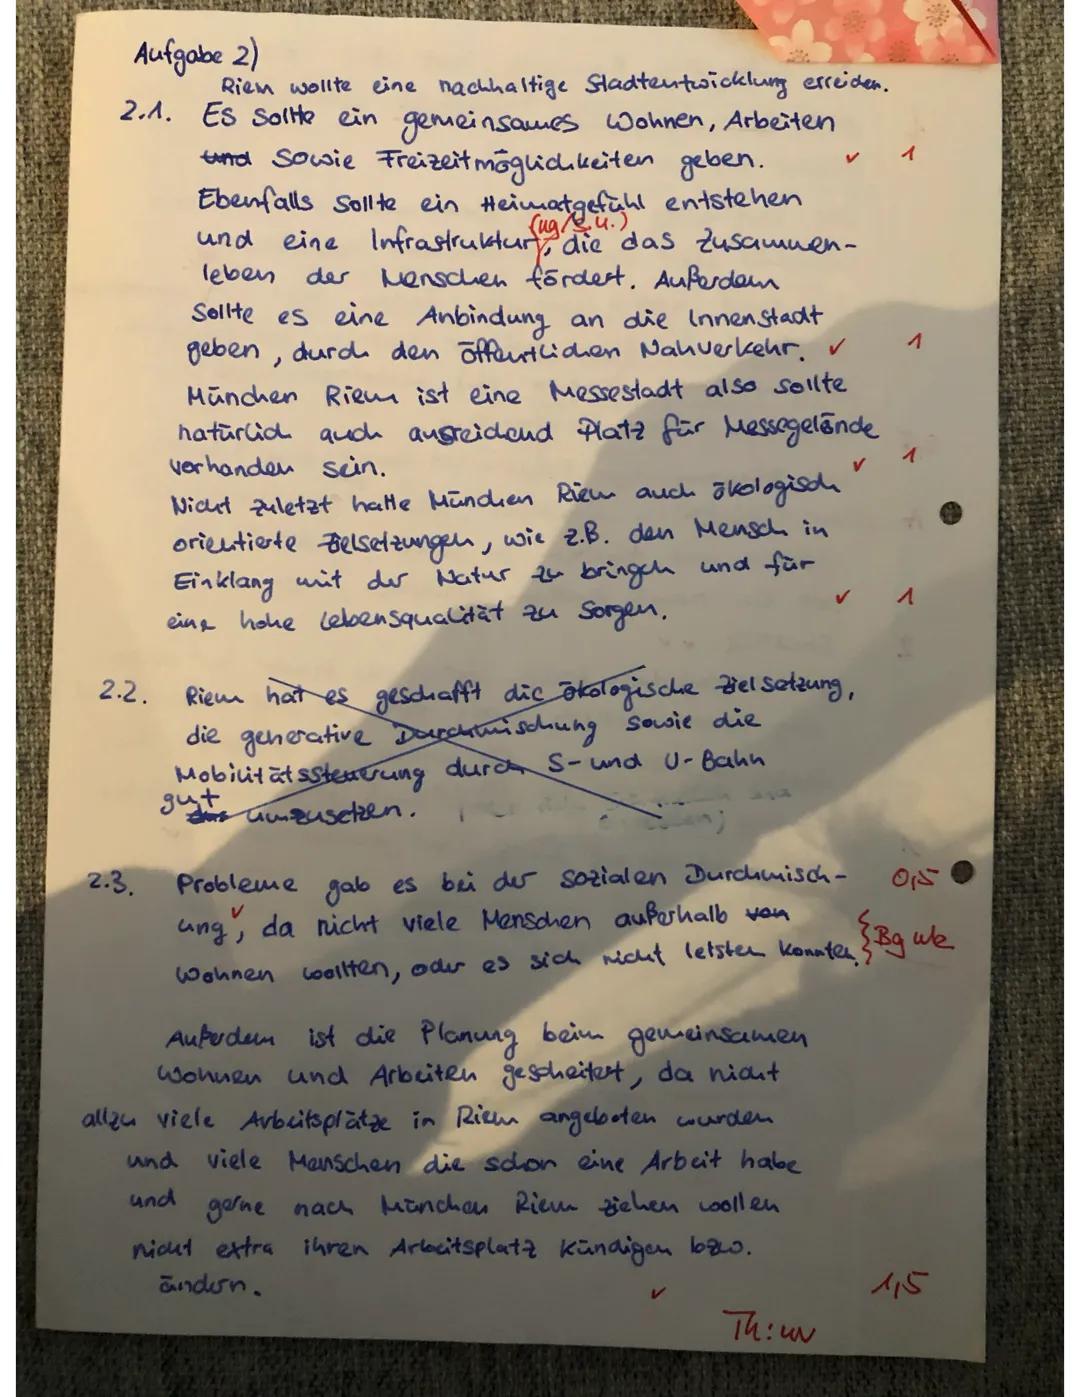 Aufgabe 2)
Riem wollte eine nachhaltige Stadtentwicklung erreichen.
2.1. Es sollte ein gemeinsames Wohnen, Arbeiten
und sowie Freizeitmöglichkeiten geben. ✓ 1
Ebenfalls sollte ein Heimatgefühl entstehen
(ug/s.u.)
und eine Infrastruktur, die das Zusammen-
leben der Menschen fördert. Außerdem
sollte es eine Anbindung an die Innenstadt
geben, durch den öffentlichen Nahverkehr. ✓ 1
München Riem ist eine Messestadt also sollte
natürlich auch ausreichend Platz für Messegelände
vorhanden sein. ✓ 1
Nicht zuletzt hatte München Riem auch ökologisch
orientierte Zielsetzungen, wie z.B. den Mensch in
Einklang mit der Natur zu bringen und für
eine hohe Lebensqualität zu sorgen. ✓ 1
2.2. Riem hat es geschafft die ökologische Zielsetzung,
die generative Durchmischung sowie die
Mobilitätssteuerung durch S- und U-Bahn
gut umzusetzen.
2.3. Probleme gab es bei der sozialen Durchmisch- 0,5
ung ✓, da nicht viele Menschen außerhalb von
wohnen wollten, oder es sich nicht leisten konnten. } Bg wk
Außerdem ist die Planung beim gemeinsamen
Wohnen und Arbeiten gescheitert, da nicht
allzu viele Arbeitsplätze in Riem angeboten wurden
und viele Menschen die schon eine Arbeit habe
und gerne nach München Riem ziehen wollen
nicht extra ihren Arbeitsplatz kündigen bzw.
ändern. ✓ 1,5